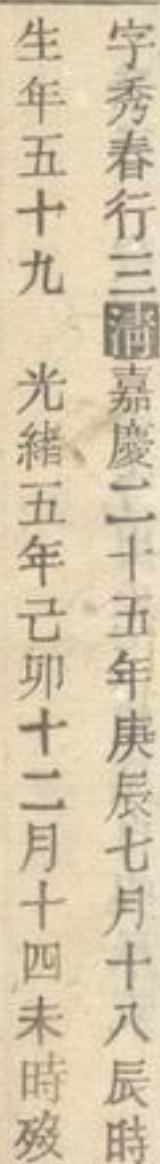 字秀春行三清嘉慶二十五年庚辰七月十八辰時
生年五十九 光緒五年己卯十二月十四未時歿